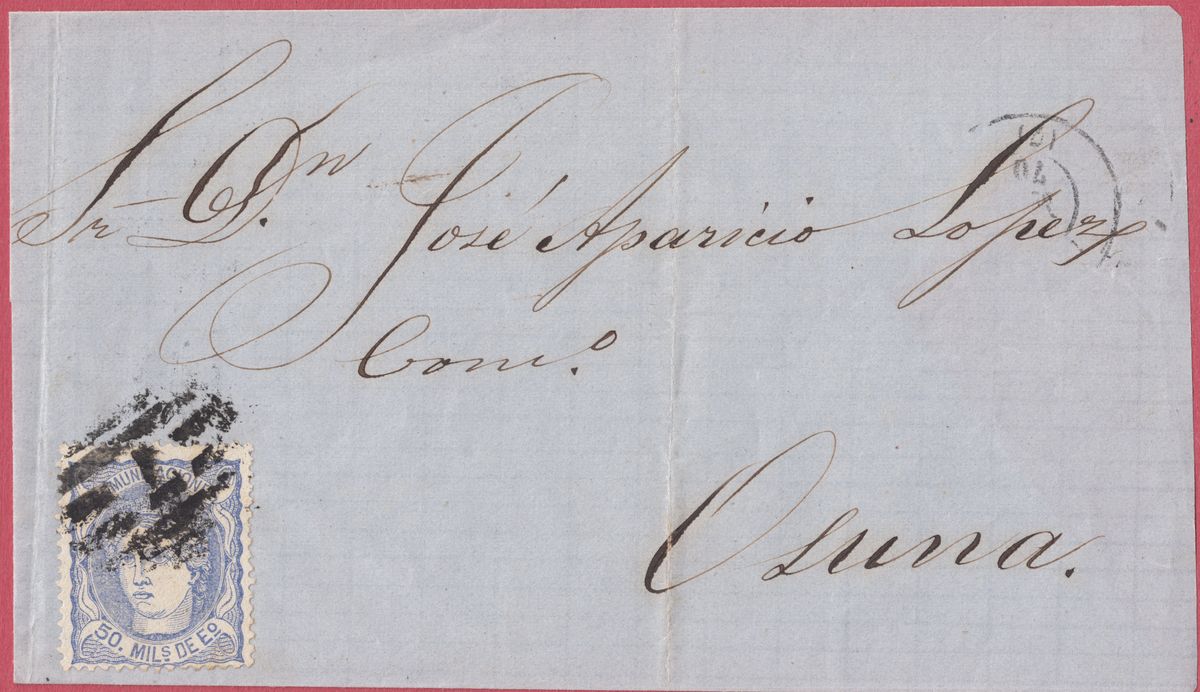 Sr. Dn José Aparicio Lopez
Com.o
Osuna.
50. MILS. DE Eo